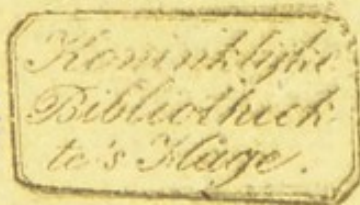 Koninklyke
Bibliotheek
te's Hage.